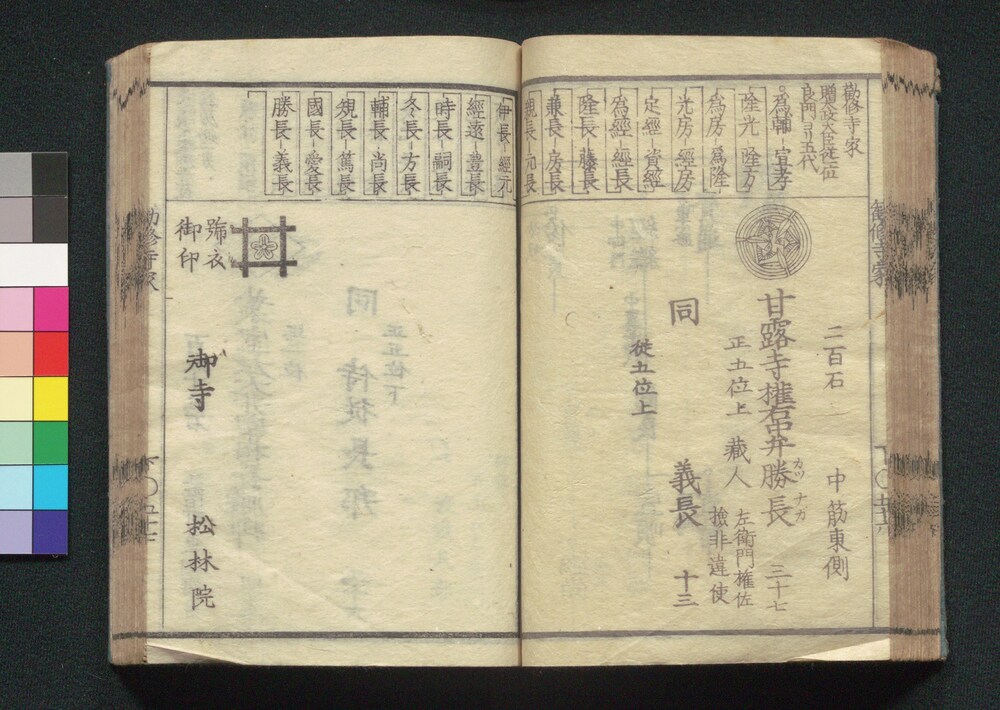 勧修寺家
勧修寺家
贈太政大臣従一位
良門ヨリ五代
為輔 宣孝
隆光 隆方
為房 為隆
光房 經房
定經 資經
為經 經長
隆長 藤長
兼長 房長
親長 元長
伊長 經元
經遠 豊長
時長 嗣長
冬長 方長
輔長 尚長
規長 篤長
國長 愛長
勝長 義長
二百石 中筋東側
甘露寺權右中弁勝長 カツナガ 三十七
正五位上 藏人 左衛門權佐
檢非違使
同 義長 十三
從五位上
號衣
御印
御寺 松林院
勧修寺家